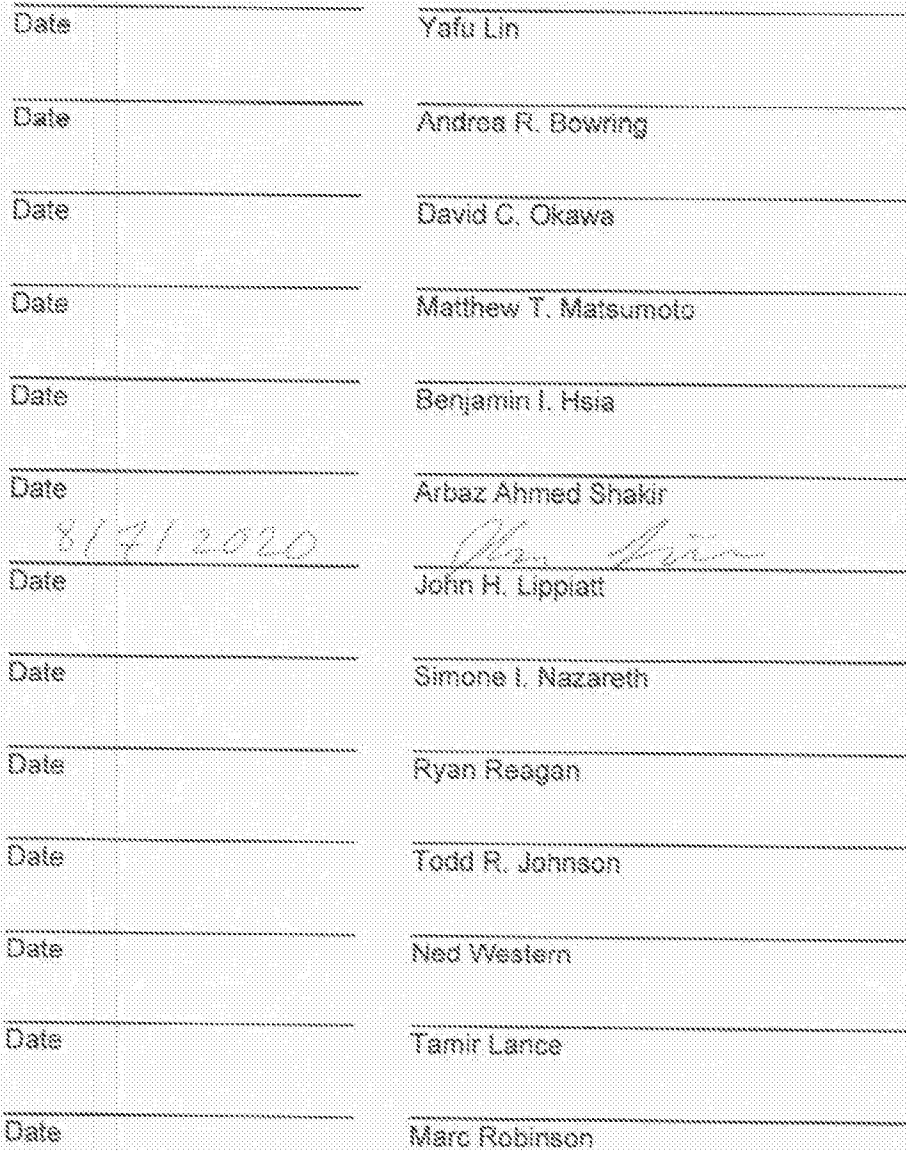 Date Yafu Lin
Date Andrea R. Bowring
Date David C. Okawa
Date Matthew T. Matsumoto
Date Benjamin I. Hsia
Date Arbaz Ahmed Shakir
8/7/2020
Date John H. Lippiatt
Date Simone I. Nazareth
Date Ryan Reagan
Date Todd R. Johnson
Date Ned Western
Date Tamir Lance
Date Marc Robinson